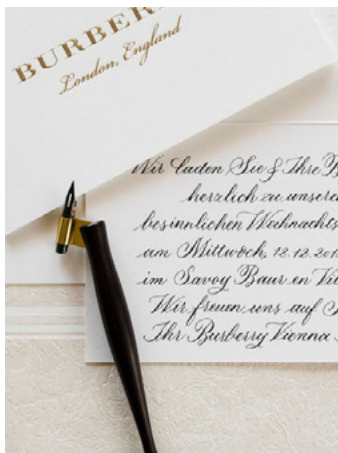 BURBER
London, England
Wir laden Sie & Ihre B
herzlich zu unserem
besinnlichen Weihnachts
am Mittwoch, 12.12.201
im Savoy Baur en Vil
Wir freuen uns auf S
Ihr Burberry Vienna